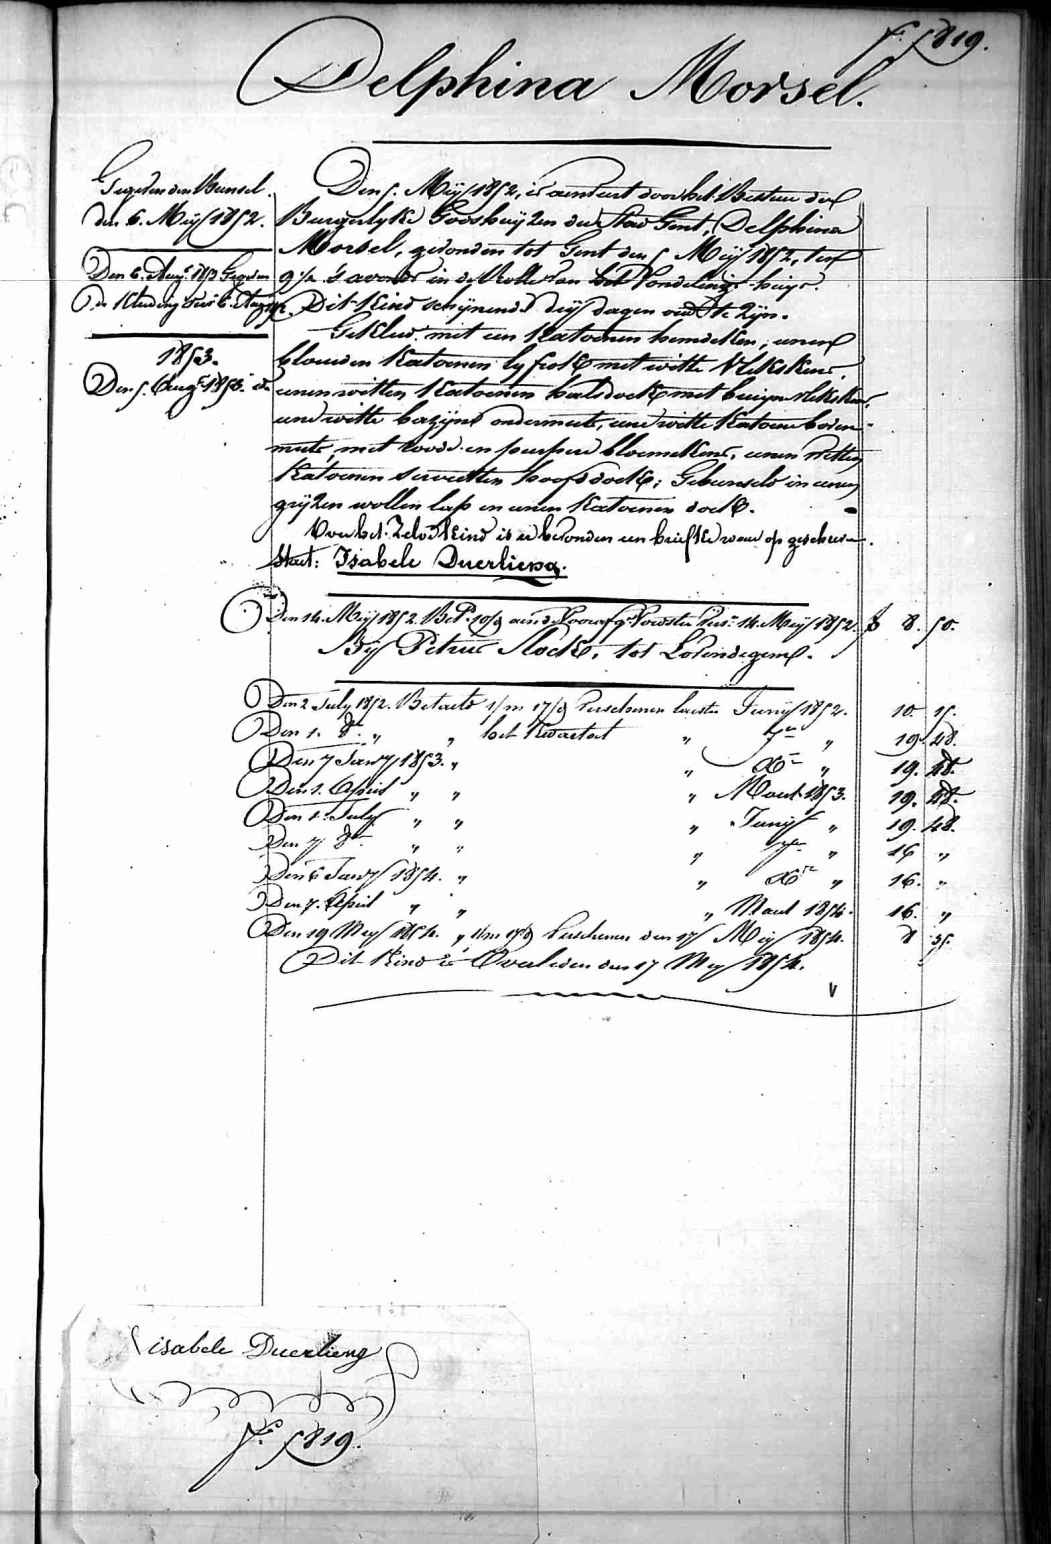 f° 5819.
Delphina Morsel.
Gegeven den Bunsel
den 6. Meij 1852.
Den 6. Aug. 1852 Gegeven
de Kleding
1853.
Den 5. Aug. 1853. do
Den 5. Meij 1852, is aenveert door het Bestuer der
Burgerlyke Godshuijzen der Stad Gent, Delphina
Morsel, gevonden tot Gent den 5 Meij 1852, ten
9 1/2 s'avonds in de Rolle van het Vondelings-huijs.
Dit Kind schijnende drij dagen oud te zijn.
Gekleed met een Katoenen hemdeken, eenen
blauwen Katoenen lyfrok met witte vlekskens,
eenen witten Katoenen halsdoek met vlekskens,
eene witte bazijne ondermuts, eene witte Katoene boven-
muts, met roode en purpere bloemekens, eenen witten
Katoenen servetten hoofddoek; Gebunseld in eenen
grijzen wollen lap en eenen Katoenen doek.
Voor het Zelve Kind is er bevonden een briefke waer op geschreven
staet: Isabele Duerlieng.
Den 14. Meij 1852. Bet. 14 Meij 1852. f 8. 50.
Bij Petrus Stock, tot Lovendegem.
Den 2 July 1852. Betaeld 1/m 17/d verschenen laesten Junij 1852. 10. 15.
Den 1. 8r. " " het Kwartael " 7er " 19. 48.
Den 7 Janry 1853. " " Xr " 19. 48.
Den 1. April " " " Maert 1853. 19. 48.
Den 1. July " " " Junij " 19. 48.
Den 7 8r " " " 7er " 16 "
Den 6 Janry 1854. " " Xr " 16. "
Den 7. April " " " Maert 1854. 16. "
Den 19 Meij 1854. " 1/m 17/d verschenen den 17 Meij 1854. 8 35.
Dit Kind is Overleden den 17 Meij 1854.
isabele Duerlieng
f° 5819.